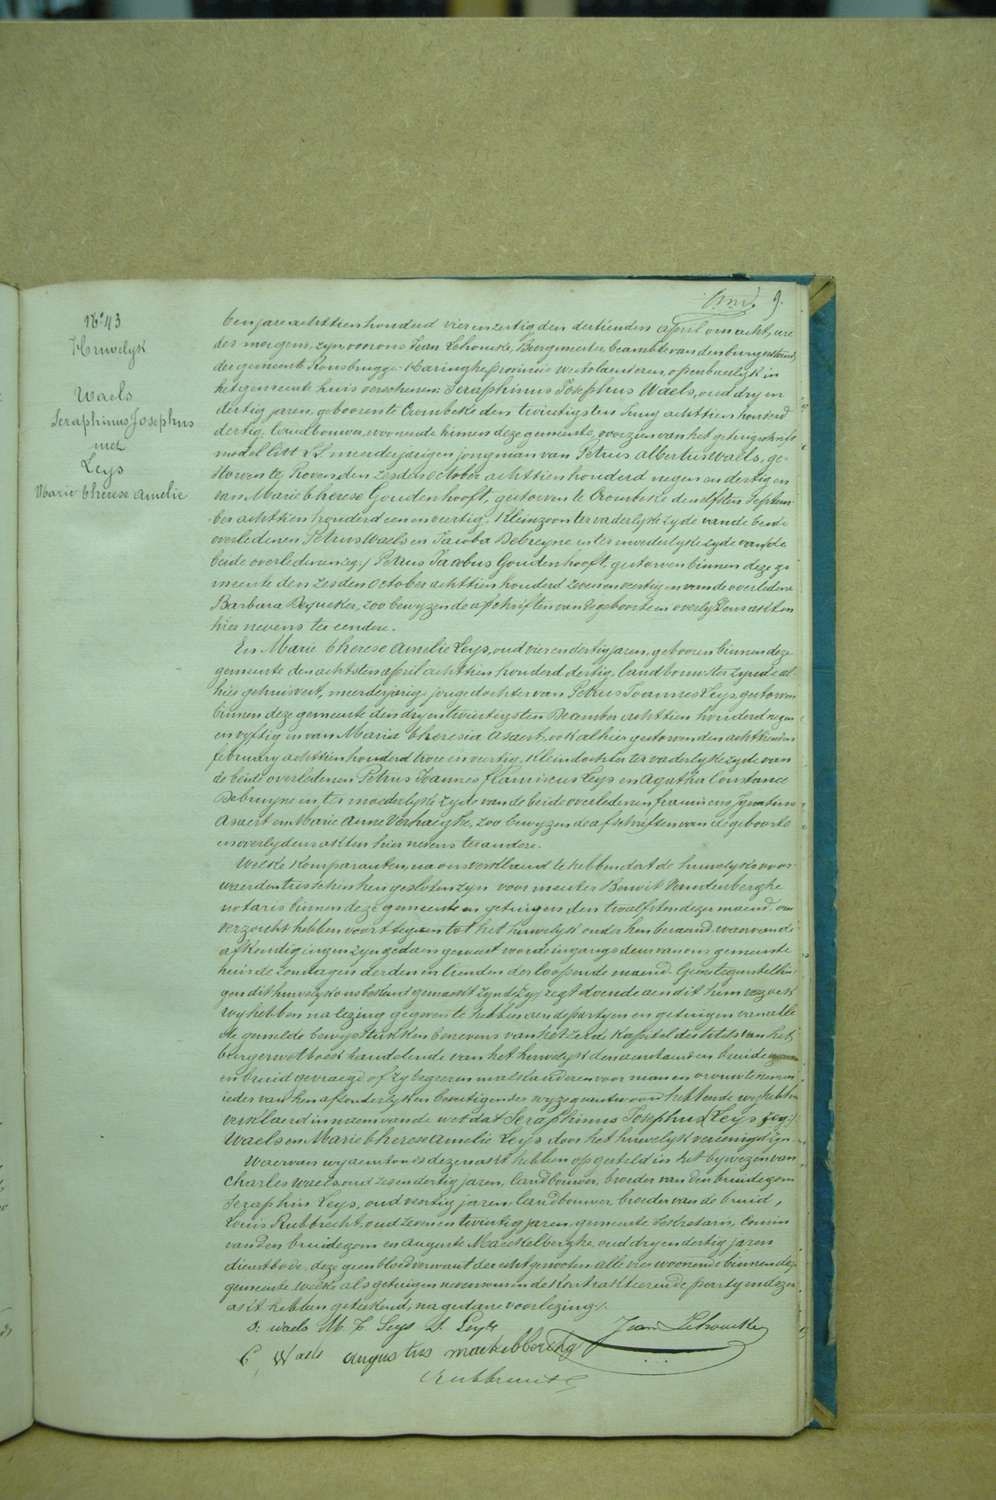 9.
N° 43
Huwelyk
Waels
Seraphinus Josephus
met
Leys
Marie Therese Amelie
Ten jare achttien honderd vier en zestig den dertienden april om acht ure
des morgens, zyn voor ons Jean Lehoucke, Burgemeester beambte van den burgerstand
der gemeente Rousbrugge-Haringhe provincie westvlaenderen, openbaerlyk in
het gemeente huis verschenen: Seraphinus Josephus Waels, oud dry en
dertig jaren, geboren te Crombeke den twintigsten Juny achttien honderd
dertig, landbouwer, woonende binnen deze gemeente, voorzien van het getuigschrift
model litt meerderjarigen jongman van Petrus albertus Waels, ge-
storven te Proven den zesden october achttien honderd negen en dertig en
van Marie Therese Goudenhooft, gestorven te Crombeke den elfsten septem-
ber achttien honderd een en veertig. Kleinzoon ter vaderlyke zyde van de beide
overledenen Petrus Waels en Jacoba Debreyne en ter moederlyke zyde van de
beide overledenen (zeg:) Petrus Jacobus Goudenhooft, gestorven binnen deze ge-
meente den zesden October achttien honderd zeven en veertig en van de overledene
Barbara Dequeker, zoo bewyzen de afschriften van de geboorte en overlydens akten
hier nevens ter eendere.
En Marie Therese Amelie Leys, oud vier en dertig jaren, geboren binnen deze
gemeente den achtsten april achttien honderd dertig, landbouwster zynde al-
hier gehuisvest, meerderjarige jonge dochter van Petrus Joannes Leys, gestorven
binnen deze gemeente den dry en twintigsten December achttien honderd negen
en vyftig en van Maria Theresia Asaert, ook alhier gestorven den achttienden
february achttien honderd twee en veertig. Kleindochter ter vaderlyke zyde van
de beide overledenen Petrus Joannes franciscus Leys en Agatha Constance
Debruyne en ter moederlyke zyde van de beide overledenen franciscus Ignatius
Asaert en Marie Anne Verhaeghe, zoo bewyzen de afschriften van de geboorte
en overlydens akten hier nevens ter andere.
Welke komparanten, na ons verklaerd te hebben dat de huwelyksvoor-
waerden tusschen hen gesloten zyn voor meester Benoit Vandenberghe
notaris binnen deze gemeente en getuigen den twaalfsten dezer maend, ons
verzocht hebben voort te gaen tot het huwelyk onder hen beraemd, waervan de
afkondigingen zyn gedaen geweest voor de ingangs deur van ons gemeente
huis de zondagen derden en tienden der loopende maend. Geene tegenstellin-
gen dit huwelyk ons bekend gemaekt zynde, zy regt doende aen dit hun verzoek
wy hebben na lezing gegeven te hebben aen de partyen en getuigen van alle
de gemelde bewysstukken benevens van het zesde kapittel des titels van het
burgerwetboek handelende van het huwelyk den aenstaenden bruidegom
en bruid gevraegd of zy begeeren malkanderen voor man en vrouw te nemen
ieder van hen afzonderlyk en bevestigender wyze geantwoord hebbende wy hebben
verklaerd in naem van de wet dat Seraphinus Josephus (Leys zeg:)
Waels en Marie Therese Amelie Leys door het huwelyk vereenigd zyn.
Waervan wy aenstonds deze akt hebben opgesteld in het bywezen van
Charles Waels oud zes en dertig jaren, landbouwer, broeder van den bruidegom
Seraphin Leys, oud veertig jaren, landbouwer broeder van de bruid,
Louis Rubbrecht, oud zeven en twintig jaren, gemeente sekretaris, cousin
van den bruidegom en Auguste Maeckelberghe, oud dry en dertig jaren
dienstbode, deze geen bloedverwant der echtgenooten, alle vier woonende binnen deze
gemeente welke als getuigen nevens ons en de kontrakteerende partyen dezen
akt hebben geteekend, na gedane voorlezing.
S. waels M. T. Leys S. Leys Jean Lehoucke
C. Waels augustus mackelberghe
Rubbrecht